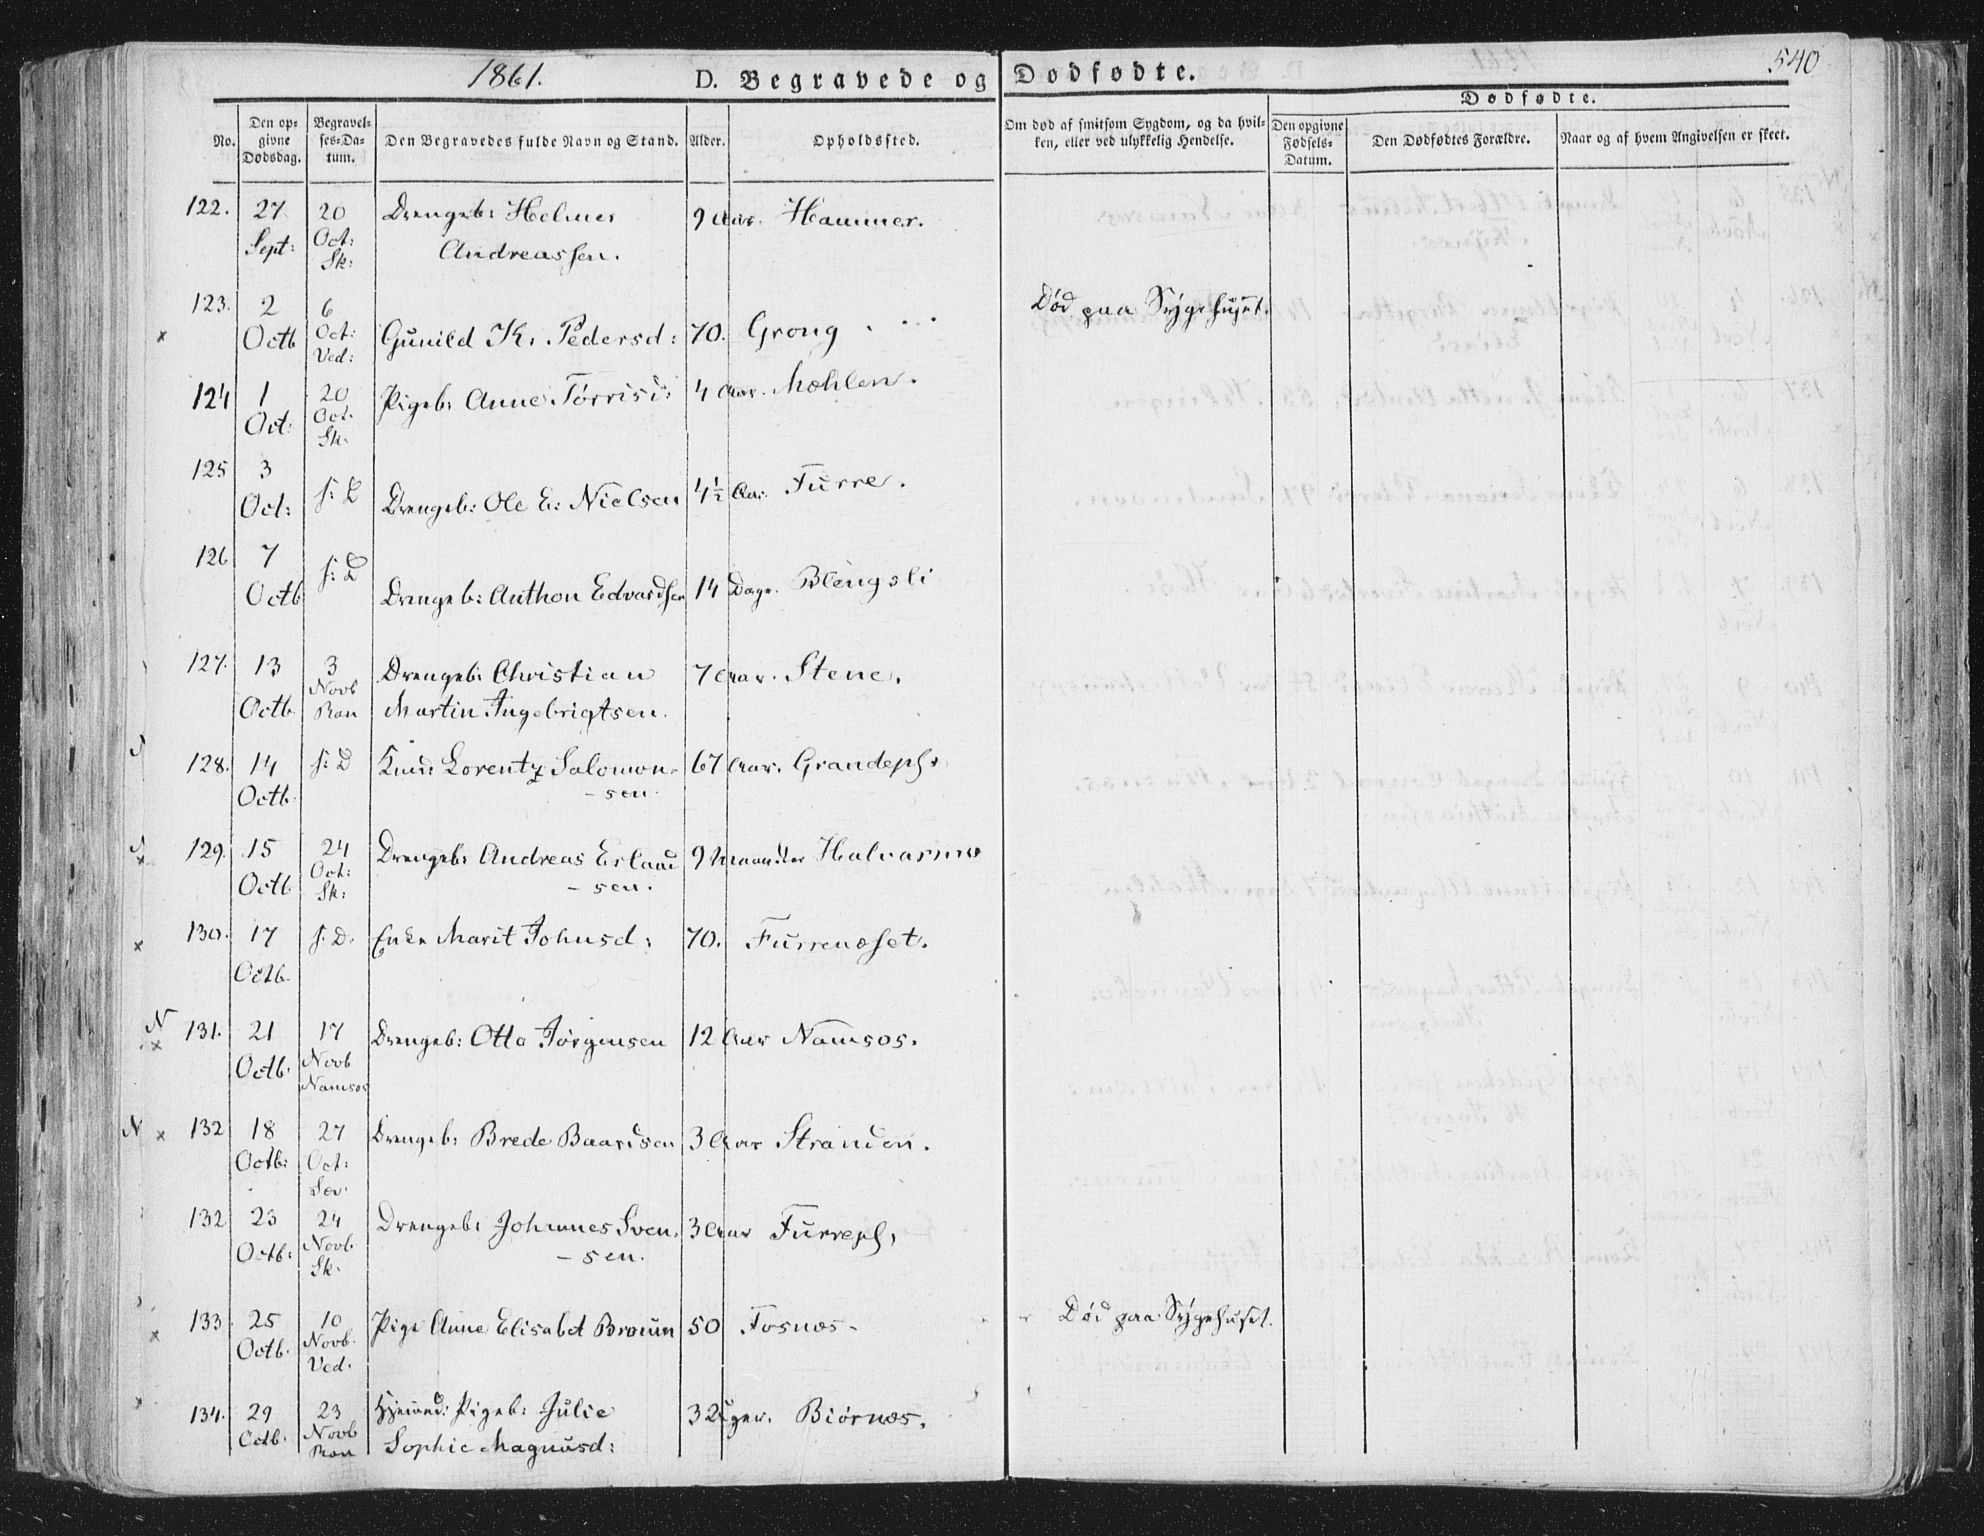 1861. D. Begravede og Dødfødte. 540
No. Den opgivne Dødsdag. Begravelses-Datum. Den Begravedes fulde Navn og Stand. Alder. Opholdssted. Om død af smitsom Sygdom, og da hvilken, eller ved ulykkelig Hendelse. Dødfødte. Den opgivne Fødsels-Datum. Den Dødfødtes Forældre. Naar og af hvem Angivelsen er skeet.
122. 27 20 Drengeb: Helmer 9 Aar. Hammer.
Sept: Oct: Sk: Andreassen.
123. 2 6 Død paa Sygehuset.
Octb Oct: Ved: Gunild K. Pedersd: 70. Grong
124 1 20 Pigeb: Anne Tørrisd: 4 Aar. Mohlen.
Oct: Oct. Sk.
125 3
Oct: s: D Drengeb: Ole E: Nielsen 4½ Aar. Furre.
126 7 s: D
Octb Drengeb: Anthon Edvardsen 14 Dage. Blengsli
127. 13 3 Drengeb: Christian 7 Aar. Stene.
Octb. Novb Ran Martin Ingebrigtsen.
128. 14 s: D Lorentz Salomon- 67 Aar. Grandepl.
Octb. -sen.
129. 15 24 Drengeb: Andreas Erland 9 Maaneder Halvarmo
Octb. Oct: Sk: -sen.
130. 17 s. D. Enke Marit Johnsd: 70. Furrenæset.
Octb.
N 131. 21 17 Drengeb: Otto Jørgensen 12 Aar Namsos.
Octb. Novb Namsos
N 132 18 27 Drengeb: Brede Baardsen 3 Aar Stranden.
Octb: Oct: Sæv.
132 23 24 Drengeb: Johannes Sven- 3 Aar Furrepl,
Octb: Novb. Sk. -sen.
133 25 10 Pige Anne Elisabet Broünn 50 Fosnæs- Død paa Sygehuset.
Octb. Novb. Ved.
134. 29 23 Hjemmed: Pigeb: Julie 3 Uger. Biørnæs.
Octb. Novb Ran Sophie Magnusd: